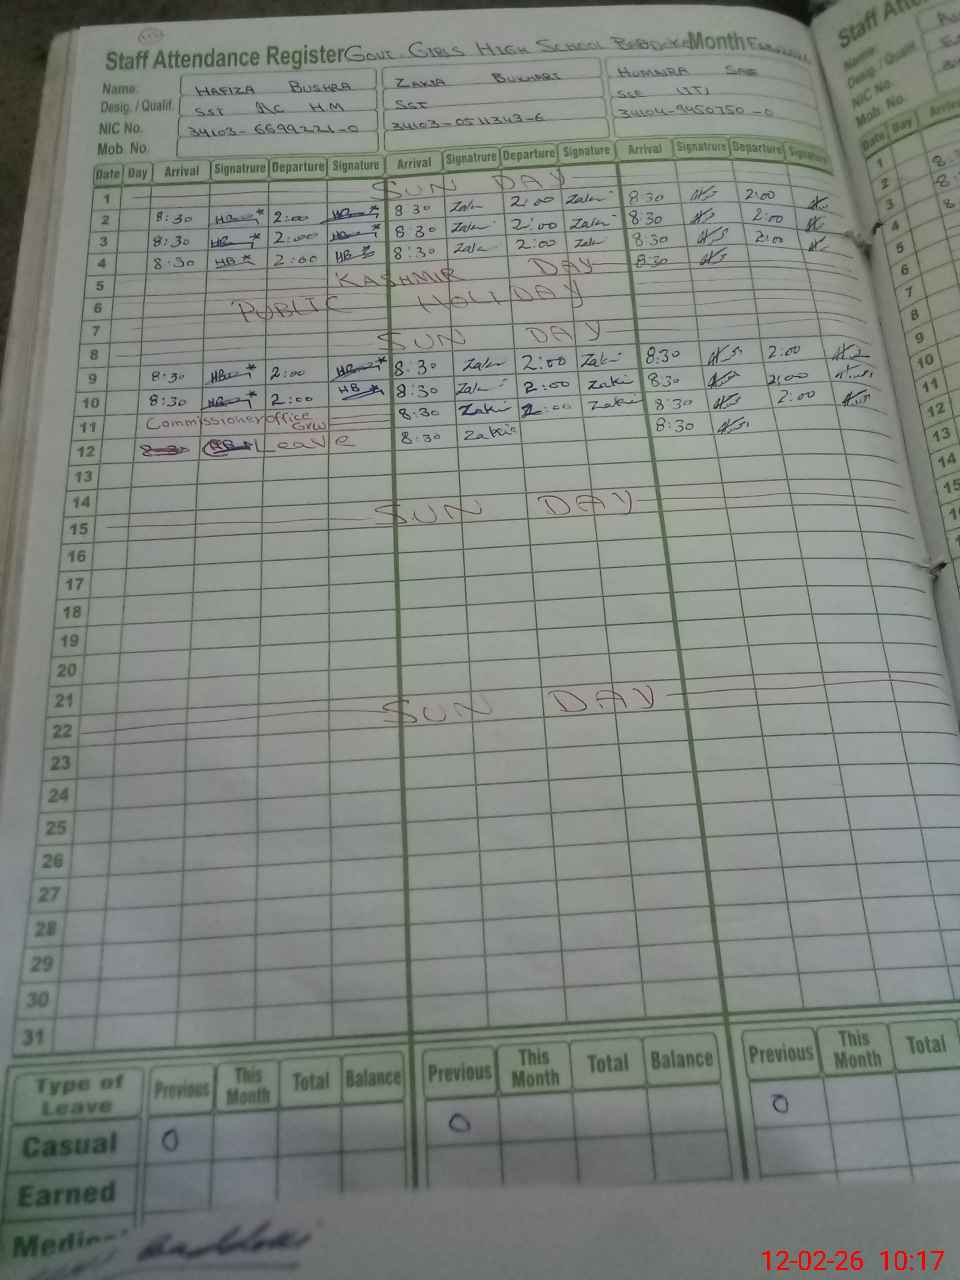 Staff Attendance Register GOVT. GIRLS HIGH SCHOOL Month
Staff
Name: HAFIZA BUSHRA ZAKIA BUKHARI HUMAIRA
Desig. / Qualif. SST HM SST SSE
NIC No. 34103-6699221-0 34103-0511343-6 34104-9450750-0
Mob. No.
Date Day Arrival Signatrure Departure Signature Arrival Signatrure Departure Signature Arrival Signatrure Departure Signature
1 SUN DAY
2 8:30 2:00 8 30 Zaki 2:00 Zaki 8:30 2:00
3 8:30 2:00 8:30 Zaki 2:00 Zaki 8:30 2:00
4 8:30 HB 2:00 HB 8:30 Zaki 2:00 Zaki 8:30 2:00
5 KASHMIR DAY 8:30
6 PUBLIC HOLIDAY
7
8 SUN DAY
9 8:30 2:00 8:30 Zaki 2:00 Zaki 8:30 2:00
10 8:30 2:00 HB 8:30 Zaki 2:00 Zaki 8:30 2:00
11 Commissioner office GRW 8:30 Zaki 2:00 Zaki 8:30 2:00
12 Leave 8:30 Zakie 8:30
13
14
15 SUN DAY
16
17
18
19
20
21
22 SUN DAY
23
24
25
26
27
28
29
30
31
Type of Leave Previous This Month Total Balance Previous This Month Total Balance Previous This Month Total
Casual 0 0 0
Earned
12-02-26 10:17